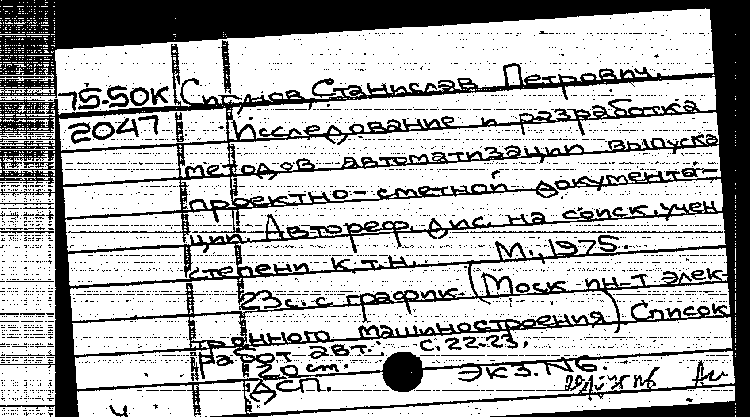 75-50К Ситнов, Станислав Петрович.
2047 Исследование и разработка
методов автоматизации выпуска
проектно-сметной документа-
ции. Автореф. дис. на соиск. учен
степени к.т.н. М., 1975.
23с. с график. (Моск ин-т элек-
тронного машиностроения) Список
работ авт.: с. 22-23.
20 cm.
ДСП. Экз. N6.